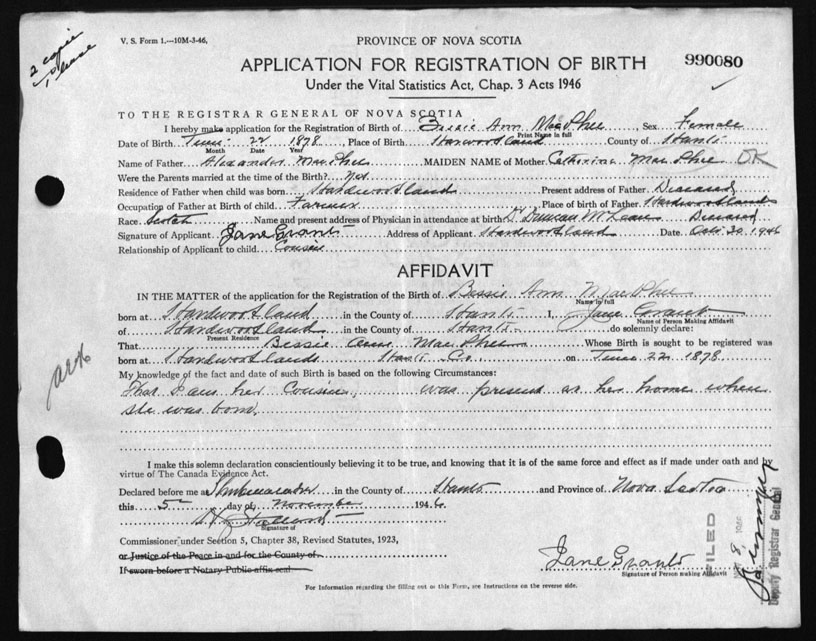 2 copies
please
V. S. Form 1.—10M-3-46.
PROVINCE OF NOVA SCOTIA
APPLICATION FOR REGISTRATION OF BIRTH
990080
Under the Vital Statistics Act, Chap. 3 Acts 1946
TO THE REGISTRAR GENERAL OF NOVA SCOTIA
I hereby make application for the Registration of Birth of Bessie Ann MacPhee, Sex Female
Print Name in full
Date of Birth June 22 1878, Place of Birth Hardwoodland County of Hants
Month Date Year
Name of Father Alexander MacPhee MAIDEN NAME of Mother Catherine MacPhee OK
Were the Parents married at the time of Birth? Yes
Residence of Father when child was born Hardwoodland Present address of Father Deceased
Occupation of Father at Birth of child Farmer Place of birth of Father Hardwoodlands
Race Scotch Name and present address of Physician in attendance at birth D. Duncan McLean Deceased
Signature of Applicant Jane Grant Address of Applicant Hardwoodland Date Oct 30 1946
Relationship of Applicant to child Cousin
AFFIDAVIT
IN THE MATTER of the application for the Registration of the Birth of Bessie Ann MacPhee
Name in full
born at Hardwoodland in the County of Hants I, Jane Grant
Name of Person Making Affidavit
of Hardwoodland in the County of Hants do solemnly declare:
Present Residence
That Bessie Ann MacPhee Whose Birth is sought to be registered was
born at Hardwoodlands Hants Co. on June 22 1878
My knowledge of the fact and date of such Birth is based on the following Circumstances:
That I am her Cousin, was present at her home when
she was born.
I make this solemn declaration conscientiously believing it to be true, and knowing that it is of the same force and effect as if made under oath and by
virtue of The Canada Evidence Act.
Declared before me at Shubenacadie in the County of Hants and Province of Nova Scotia
this 5 day of November 1946
Signature of
Commissioner under Section 5, Chapter 38, Revised Statutes, 1923,
or Justice of the Peace in and for the County of
If sworn before a Notary Public affix seal
Jane Grant
Signature of Person making Affidavit
FILED
Deputy Registrar General
For Information regarding the filling out of this Form, see Instructions on the reverse side.